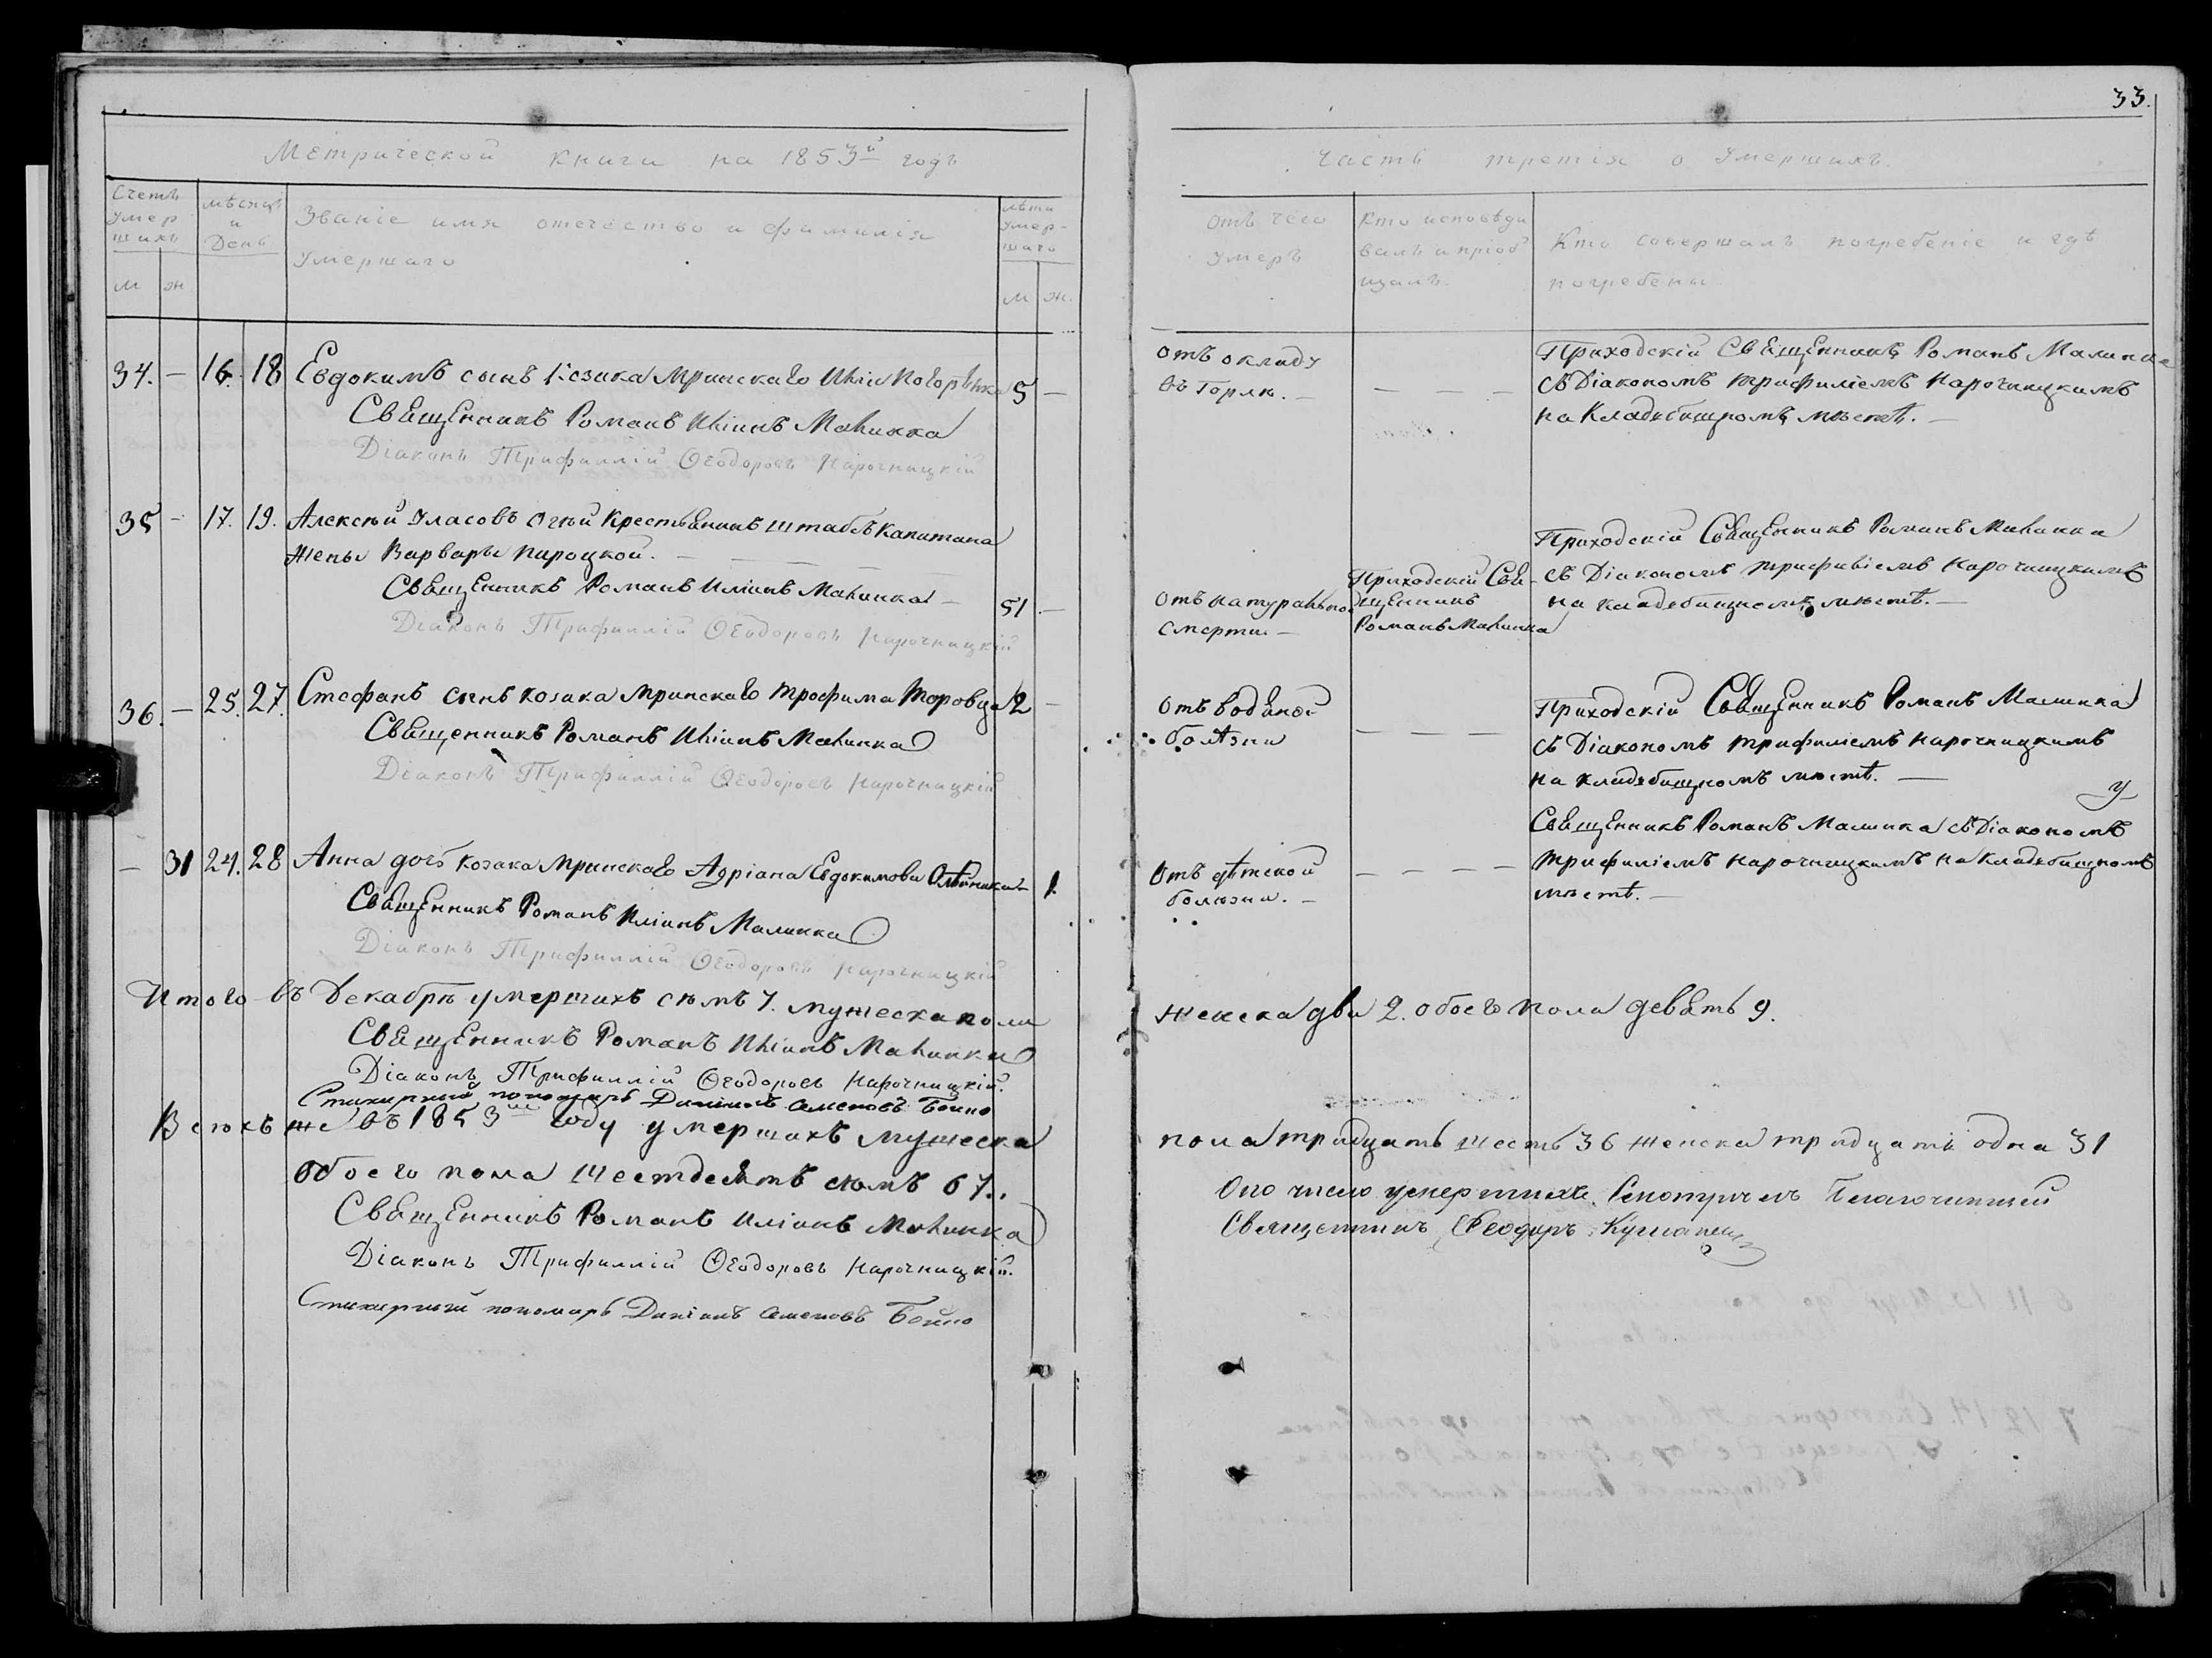 33.
Метрической книги на 1853й годъ
Часть третія о Умершихъ.
Счетъ Умер шихъ
м ж
мѣсяцъ и День
Званіе имя отечество и фамилія
Умершаго
лѣта Умер- шаго
м ж.
Отъ чего Умеръ
Кто исповѣды валъ и пріоб щалъ.
Кто совершалъ погребеніе и гдѣ
погребены.
34. — 16. 18 Евдокимъ сынъ Козака Мринскаго Иліи 5 —
Священникъ Романъ Иліинъ Малинка
Діаконъ Трифиллій Ѳеодоровъ Нарочницкій
Отъ окладу
въ Горлѣ. —
— — —
Приходскій Священникъ Романъ Малинка
съ Діакономъ Трифиліемъ Нарочницкимъ
на Кладбищномъ мѣстѣ. —
35 — 17. 19. Алексѣй Уласовъ Крестьянинъ штабсъ Капитана
Жены Варвары Пироцкой. —
Священникъ Романъ Иліинъ Малинка — 51 —
Діаконъ Трифиллій Ѳеодоровъ Нарочницкій
Отъ натуральной
смерти —
Приходскій Свя-
щенникъ
Романъ Малинка
Приходскій Священникъ Романъ Малинка
съ Діакономъ Трифиліемъ Нарочницкимъ
на кладбищномъ мѣстѣ. —
36. — 25. 27. Стефанъ сынъ козака Мринскаго Трофима Торовца 2 —
Священникъ Романъ Иліинъ Малинка
Діаконъ Трифиллій Ѳеодоровъ Нарочницкій
Отъ водяной
болѣзни
— — —
Приходскій Священникъ Романъ Малинка
съ Діакономъ Трифиліемъ Нарочницкимъ
на кладбищномъ мѣстѣ. —
— 31 24. 28 Анна дочь козака Мринскаго Адріана Евдокимова Олѣйника — 1.
Священникъ Романъ Иліинъ Малинка
Діаконъ Трифиллій Ѳеодоровъ Нарочницкій
Отъ дѣтской
болѣзни. —
— — — —
Священникъ Романъ Малинка съ Діакономъ
Трифиліемъ Нарочницкимъ на Кладбищномъ
мѣстѣ. —
Итого въ Декабрѣ умершихъ сѣмъ 7. мужеска пола
женска два 2. обоего пола девять 9.
Священникъ Романъ Иліинъ Малинка
Діаконъ Трифиллій Ѳеодоровъ Нарочницкій.
Стихирный пономарь Даміанъ Семеновъ Бойко
Всѣхъ же въ 1853мъ году умершихъ мужеска
пола тридцать шесть 36 женска тридцать одна 31
обоего пола шестдесятъ сѣмъ 67.
Священникъ Романъ Иліинъ Малинка
Діаконъ Трифиллій Ѳеодоровъ Нарочницкій.
Стихирный пономарь Даміанъ Семеновъ Бойко
Оно число умершихъ Благочинный
Священникъ Ѳеодоръ